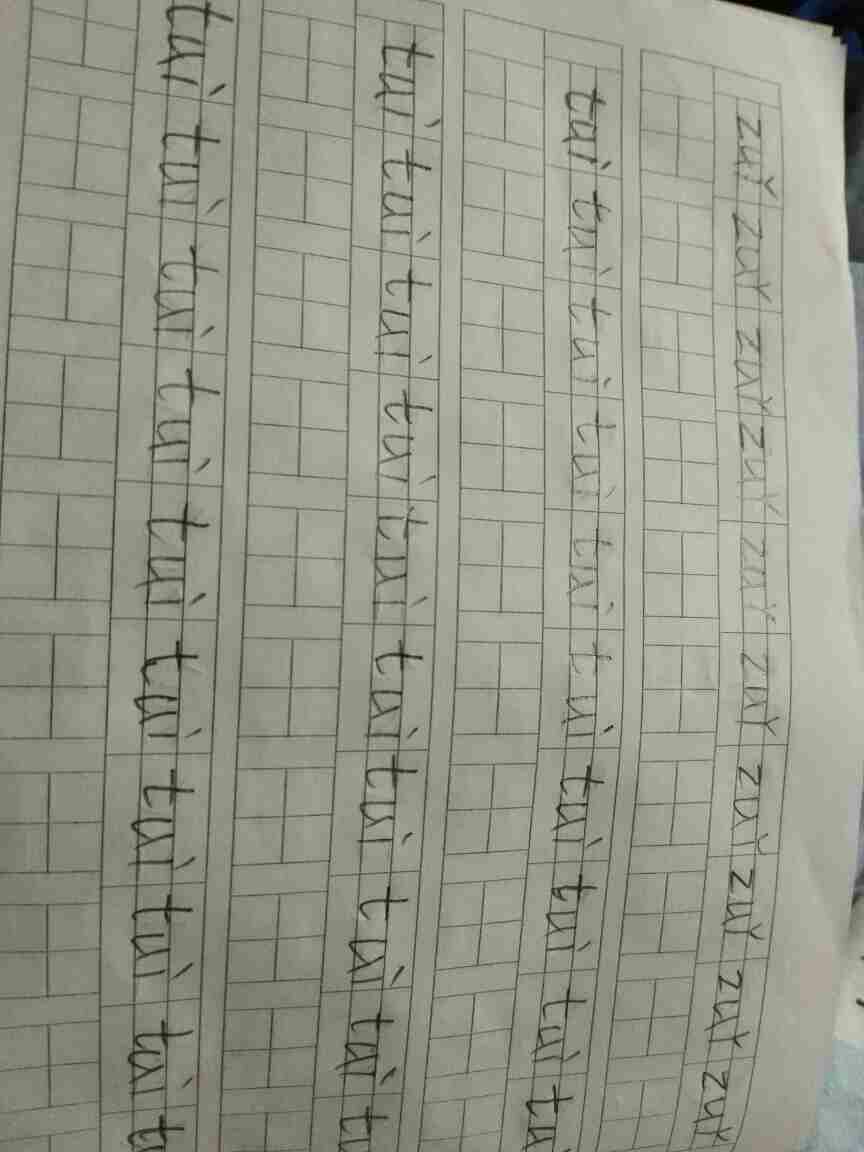 zuǐ zuǐ zuǐ zuǐ zuǐ zuǐ zuǐ zuǐ zuǐ zuǐ
tuì tuì tuì tuì tuì tuì tuì tuì tuì tu
tuì tuì tuì tuì tuì tuì tuì tuì tuì tu
tuì tuì tuì tuì tuì tuì tuì tuì tuì t